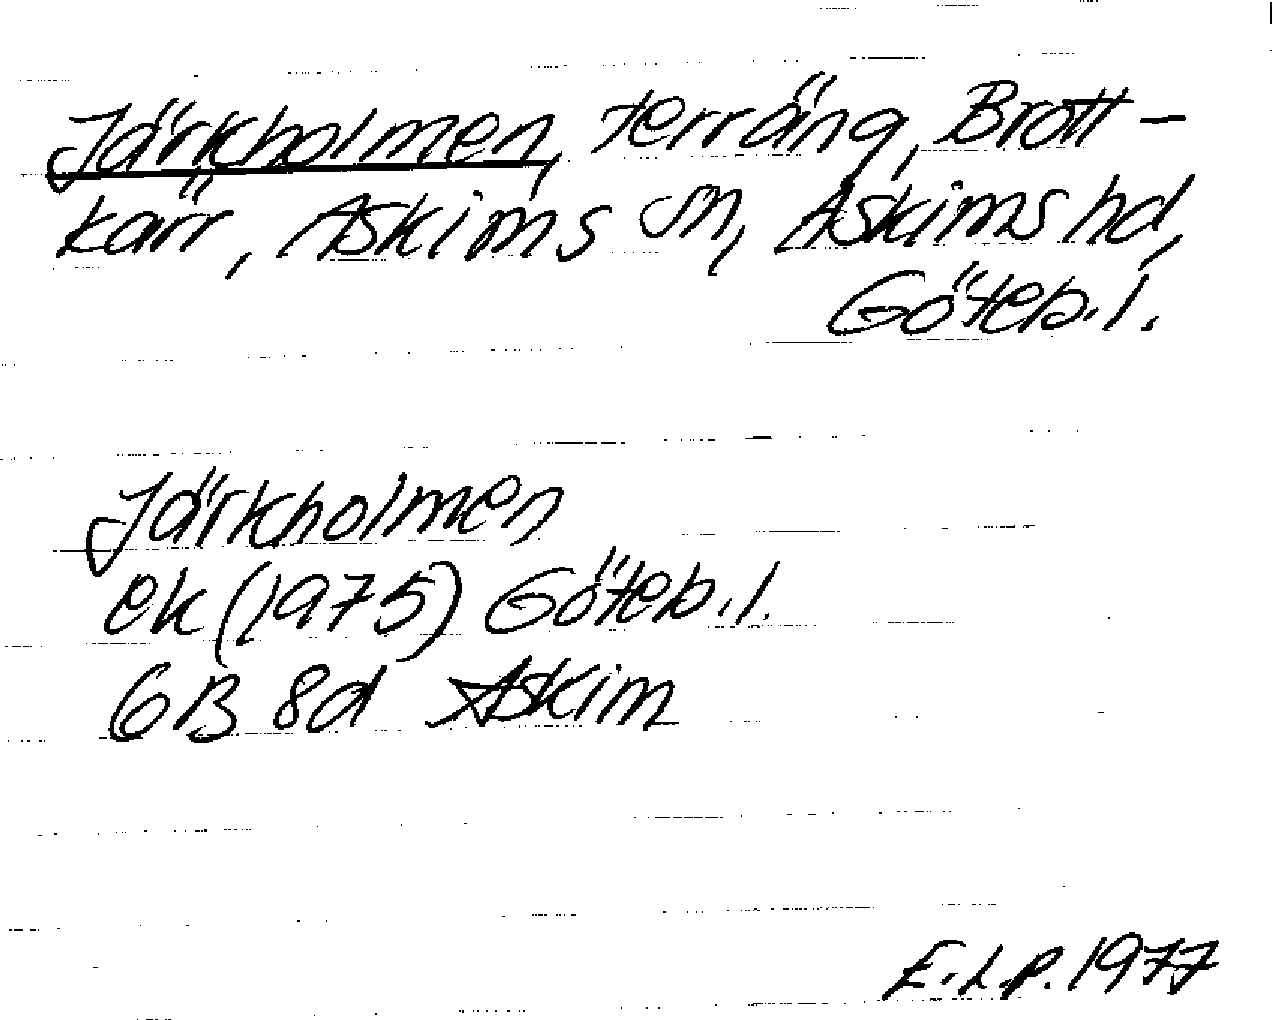 Järkholmen, terräng, Brott-
kärr, Askims sn, Askims hd,
Göteb.l.
Järkholmen
ek (1975) Göteb.l.
6B 8d Askim
E.L.P. 1977